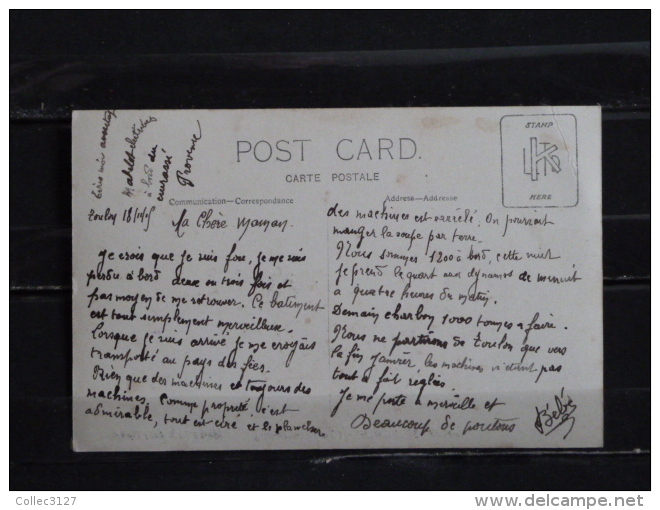 Matelot
à bord du
cuirassé
Provence
POST CARD.
CARTE POSTALE
STAMP
HERE
Communication—Correspondance
Address—Addresse
Toulon
Ma Chère Maman.
Je crois que je suis fou, je me suis
perdu à bord deux ou trois fois et
pas moyen de me retrouver. Ce batiment
est tout simplement merveilleux.
Lorsque je suis arrivé je me croyais
transporté au pays des fées.
Rien que des machines et toujours des
machines. Comme propreté c'est
admirable, tout est ciré et le plancher
des machines est On pourrait
manger la soupe par terre.
Nous sommes 1200 à bord, cette nuit
je prend le quart aux dynamos de minuit
a quatre heures du matin.
Demain charbon 1000 tonnes a faire.
Nous ne partirons de Toulon que vers
la fin Janvier, les machines n'étant pas
tout à fait reglées.
Je me porte a merveille et
Beaucoup de
Bebé
Collec3127
© delcampe.net